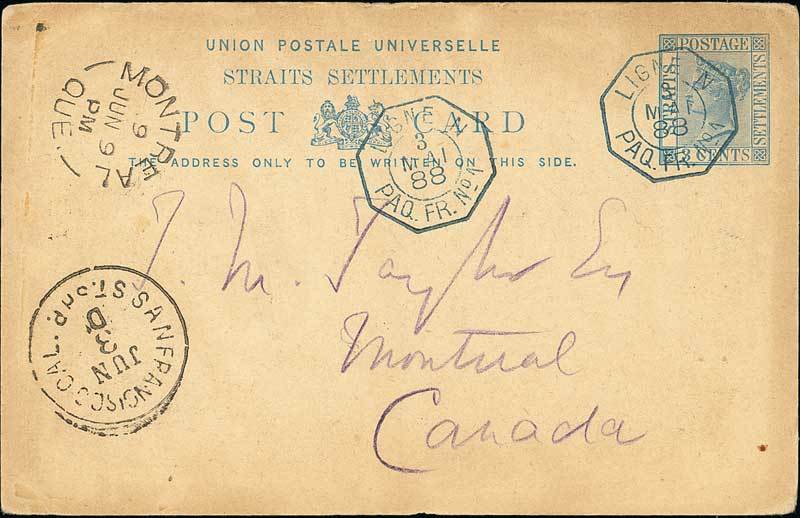 UNION POSTALE UNIVERSELLE
STRAITS SETTLEMENTS
POST CARD
THE ADDRESS ONLY TO BE WRITTEN ON THIS SIDE.
POSTAGE
STRAITS
SETTLEMENTS
3 CENTS
LIGNE N
MAI
88
PAQ. FR. No1
LIGNE N
3
MAI
88
PAQ. FR. No1
MONTREAL
9
PM
JUN 9
QUE.
J. M. Taylor Esq
Montreal
Canada
SAN FRANCISCO CAL.
D
JUN
3